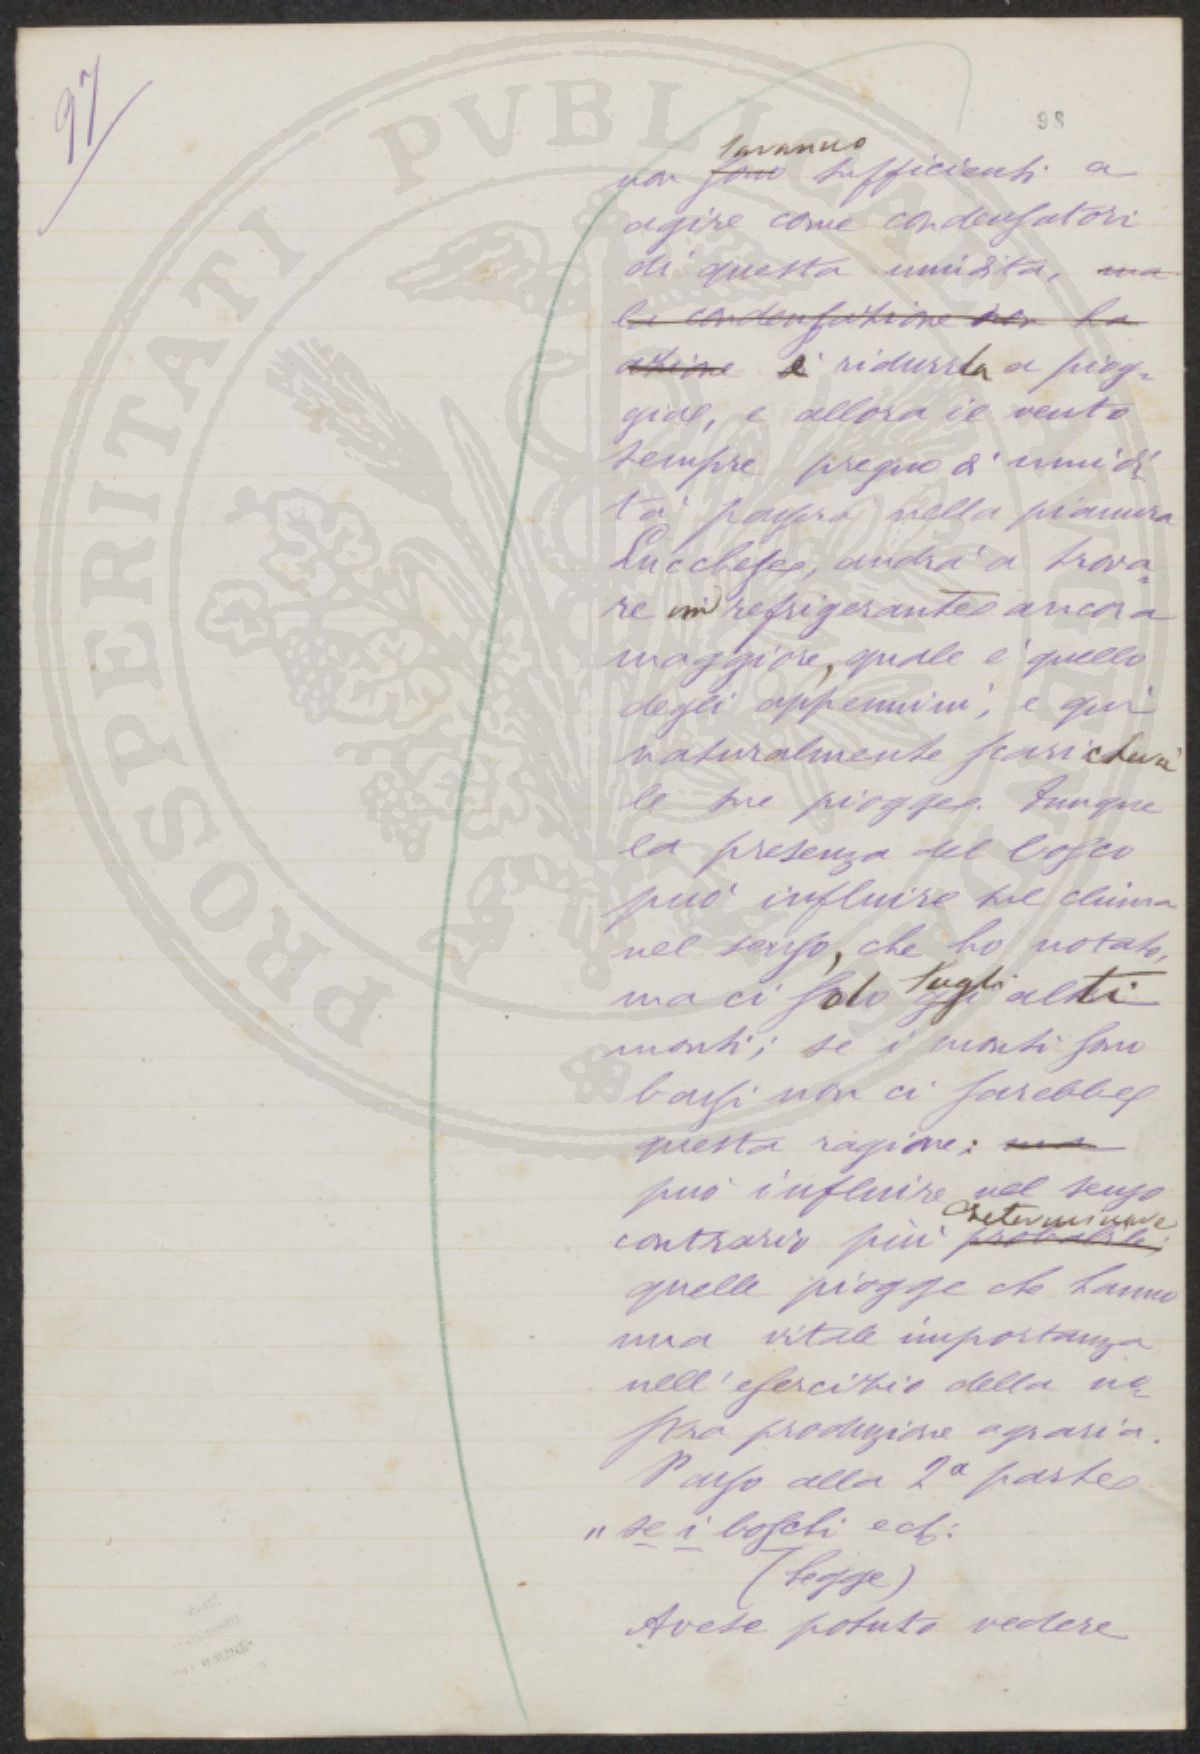 97
98
saranno
non sono sufficienti a
agire come condensatori
di questa umidita, ma
la condensazione non ha
azione si ridurrà a piog-
gia, e allora il vento
sempre pregno d'umidi-
tà passerà nella pianura
Lucchese, andrà a trova-
re un refrigerante ancora
maggiore, quale è quello
degli appennini, e qui
naturalmente scaricherà
le sue piogge. Dunque
la presenza del bosco
può influire sul clima
nel senso, che ho notato,
sugli
ma ci solo gli alti
monti; se i monti sono
bassi non ci sarebbe
questa ragione: ma
può influire nel senso
determinare
contrario più probabile
quelle piogge che hanno
una vitale importanza
nell'esercizio della no-
stra produzione agraria.
Passo alla 2ª parte
" se i boschi ecc:
(legge)
Avete potuto vedere
PROSPERITATI PVBLICAE